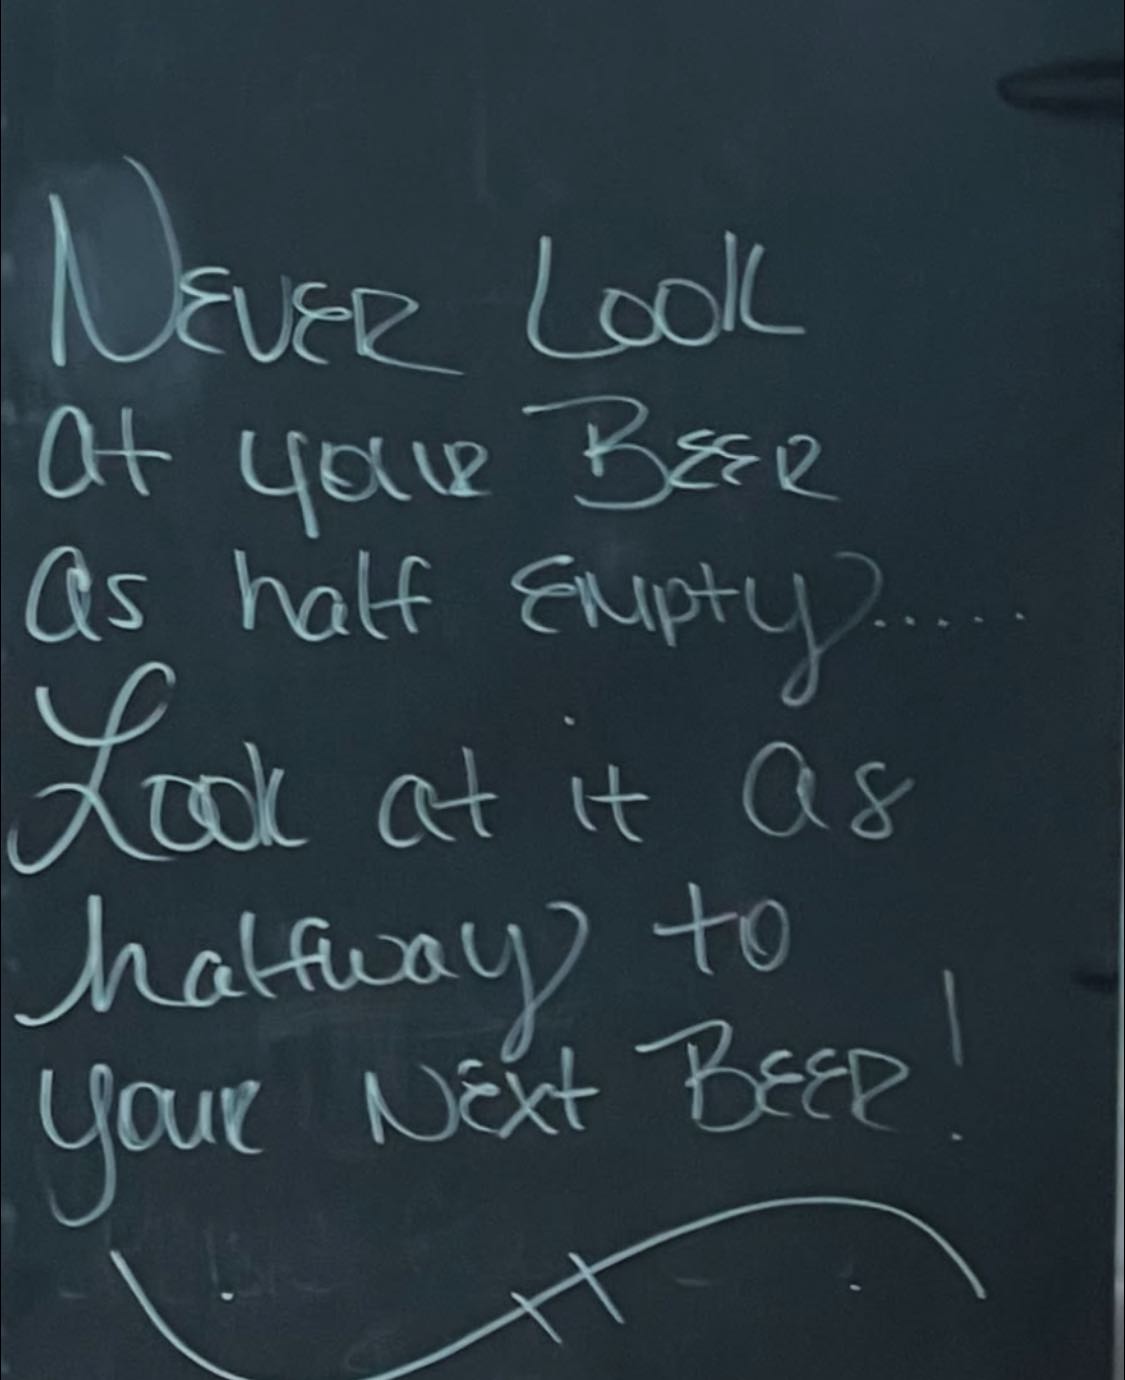 NEVER LOOK
at your BEER
as half EMpty.....
Look at it as
halfway to
your NExt BEER!